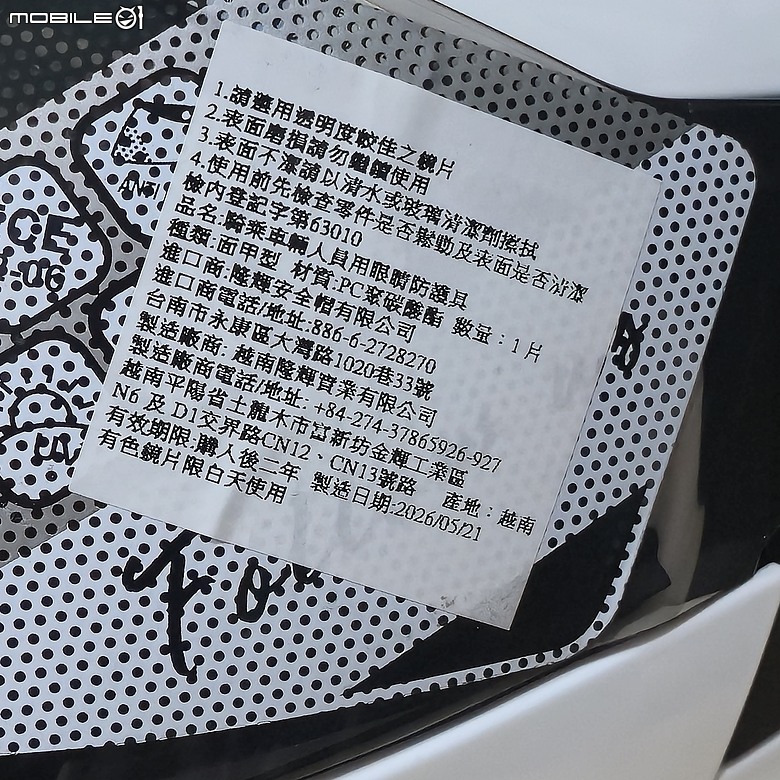 MOBILE01
1.請選用透明度較佳之鏡片
2.表面磨損請勿繼續使用
3.表面不潔請以清水或玻璃清潔劑擦拭
4.使用前先檢查零件是否鬆動及表面是否清潔
檢內登記字第63010
品名:騎乘車輛人員用眼睛防護具
種類:面甲型 材質:PC聚碳酸酯 數量：1片
進口商:隆輝安全帽有限公司
進口商電話/地址:886-6-2728270
台南市永康區大灣路1020巷33號
製造廠商: 越南隆輝實業有限公司
製造廠商電話/地址: +84-274-37865926-927
越南平陽省土龍木市富新坊金輝工業區
N6 及 D1交界路CN12、CN13號路 產地：越南
有效期限:購入後二年 製造日期:2026/05/21
有色鏡片限白天使用
ANTI
CE